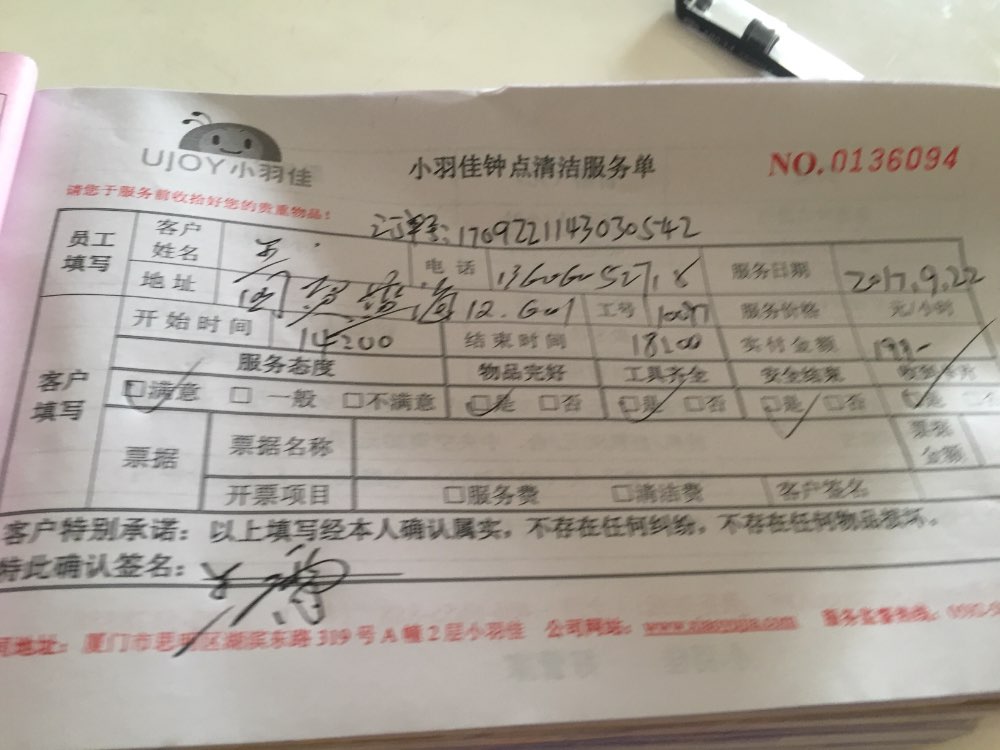 UJOY小羽佳
小羽佳钟点清洁服务单
NO.0136094
请您于服务前收拾好您的贵重物品！
订单号:1709221143030542
员工填写
客户姓名
电话
服务日期 2017.9.22
地址 12.601
工号
服务价格 元/小时
开始时间 14:00
结束时间 18:00
实付金额
客户填写
服务态度 物品完好 工具齐全 安全结束
□满意 □一般 □不满意 □是 □否 □是 □否 □是 □否 □是
票据
票据名称
票据金额
开票项目 □服务费 □清洁费 客户签名
客户特别承诺：以上填写经本人确认属实，不存在任何纠纷，不存在任何物品损坏。
特此确认签名：
地址：厦门市思明区湖滨东路319号A幢2层小羽佳 公司网站： 服务监督热线：